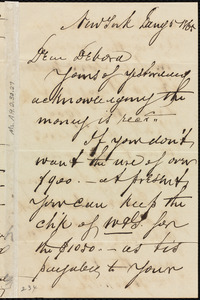 New York Jany 5 1865
Dear Debora
Yours of yesterday
acknowledging the
money is recd.
If you don't
want the use of our
$900. – at present
you can keep the
chk of for
the $1050. – as tis
payable to your
234